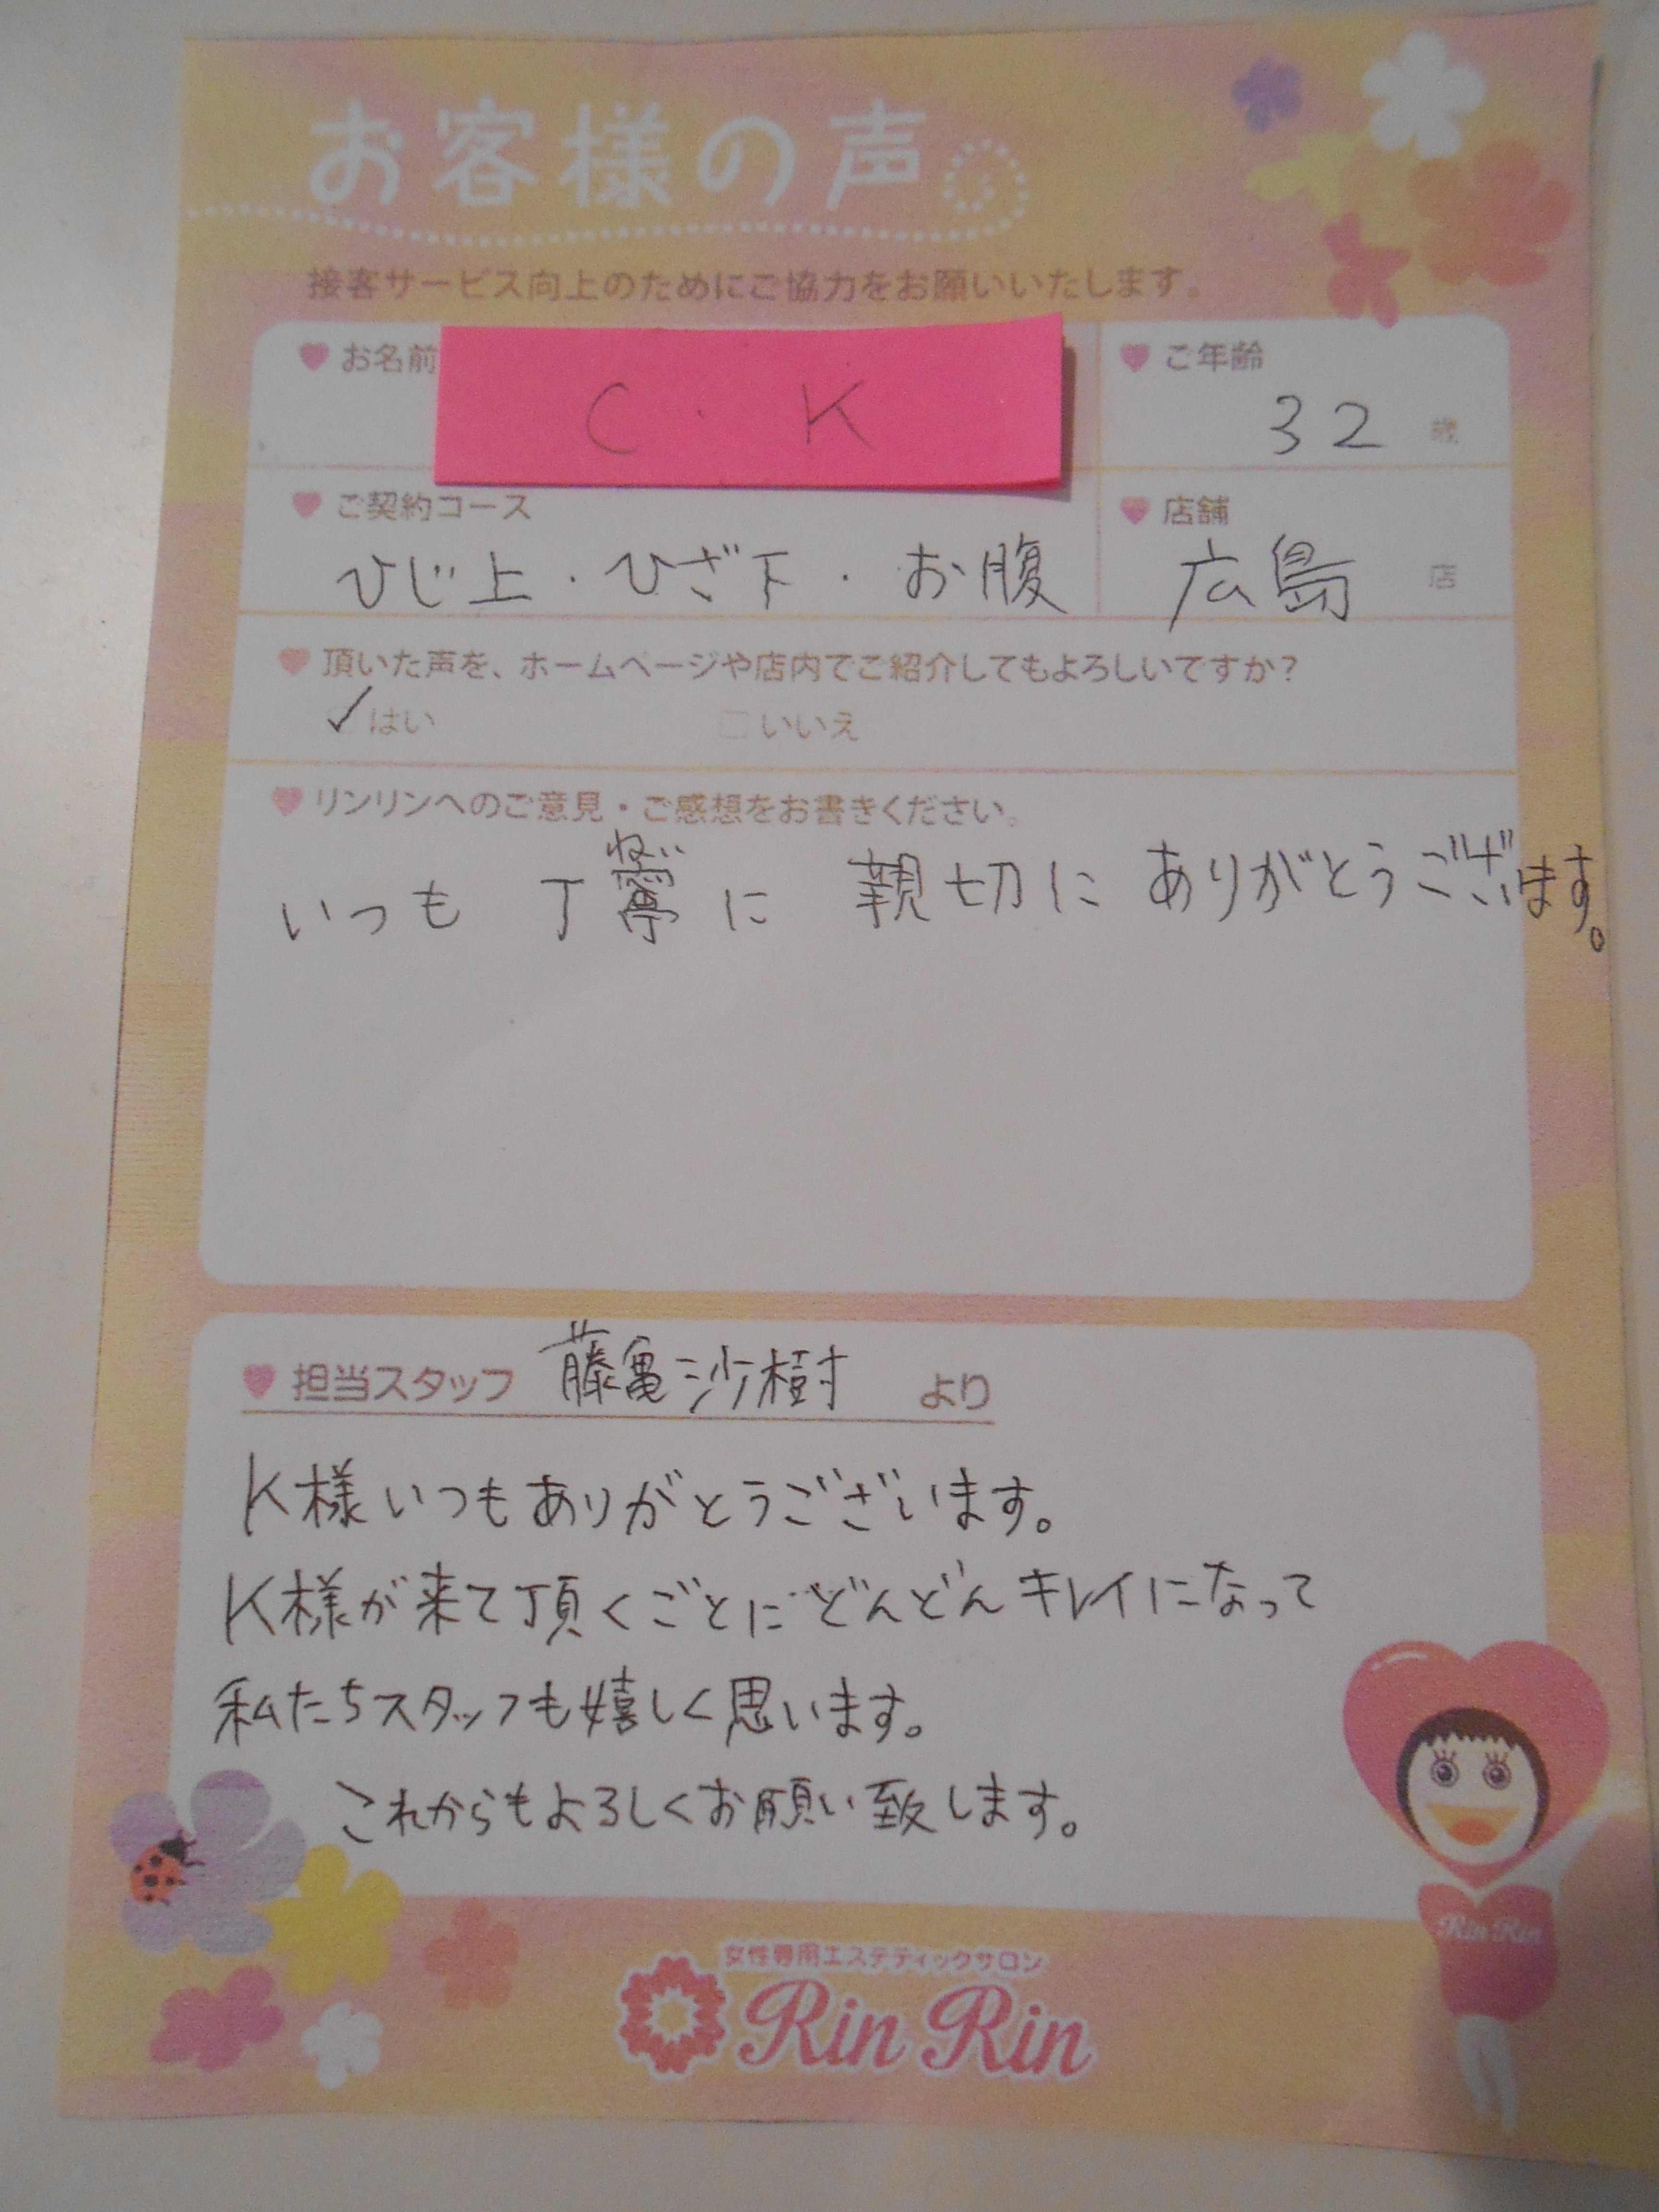 お客様の声。
接客サービス向上のためにご協力をお願いいたします。
お名前
C . K
ご年齢
32 歳
ご契約コース
ひじ上・ひざ下・お腹
店舗
広島 店
頂いた声を、ホームページや店内でご紹介してもよろしいですか?
✓はい □いいえ
リンリンへのご意見・ご感想をお書きください。
ねい
いつも 丁寧に 親切に ありがとうございます。
担当スタッフ 藤亀沙樹 より
K様いつもありがとうございます。
K様が来て頂くごとにどんどんキレイになって
私たちスタッフも嬉しく思います。
これからもよろしくお願い致します。
Rin Rin
女性専用エステティックサロン
Rin Rin